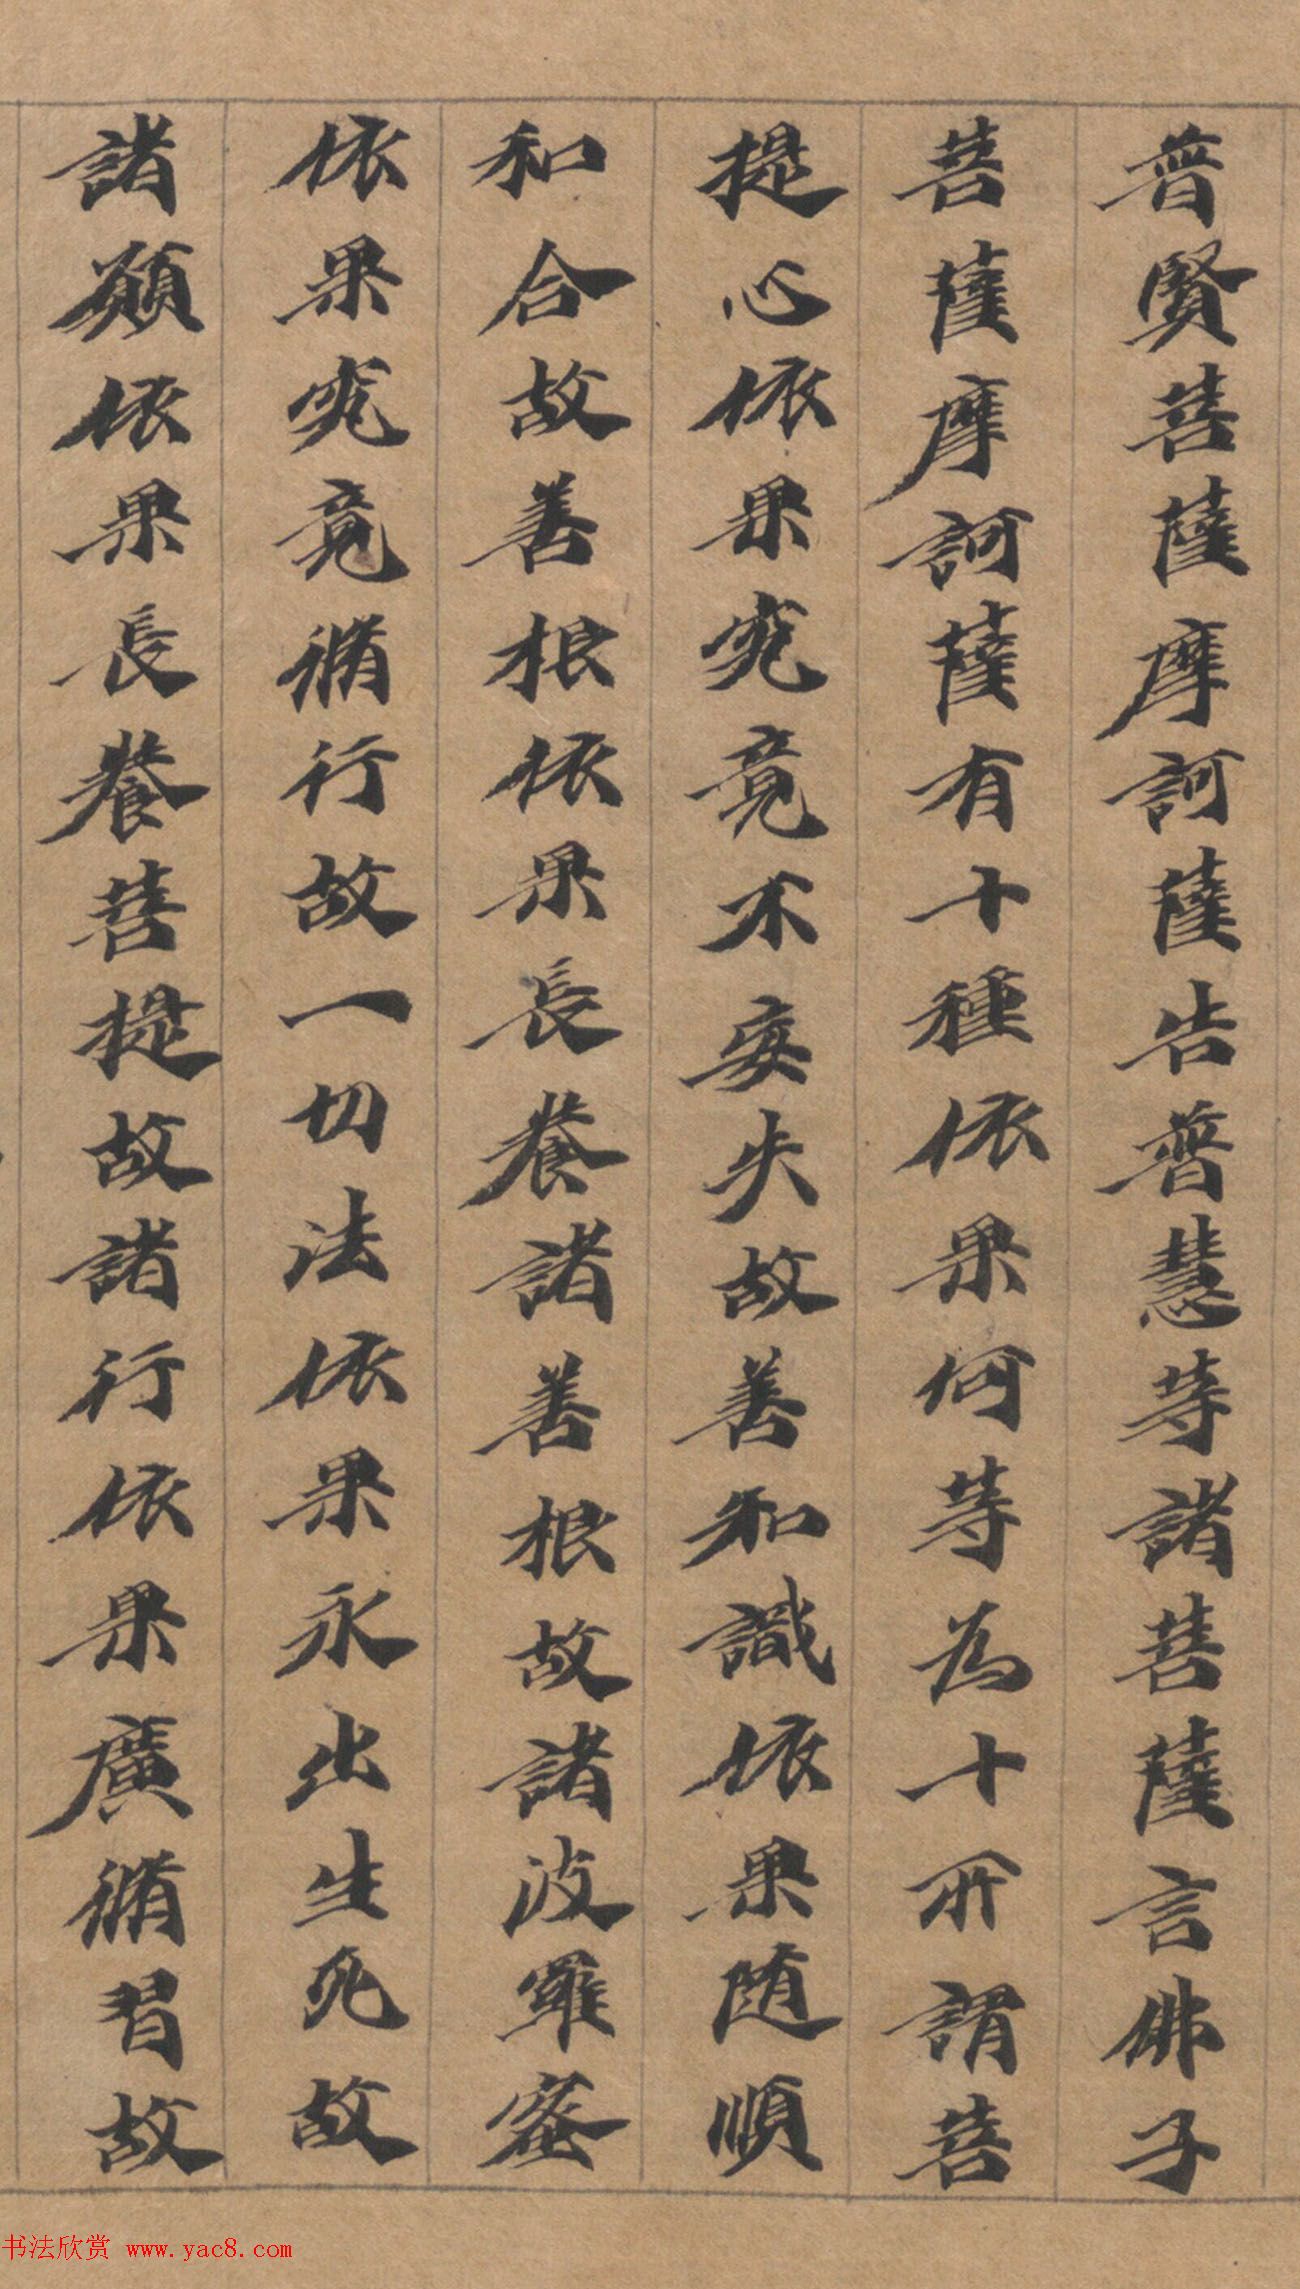 普賢菩薩摩訶薩告普慧等諸菩薩言佛子
菩薩摩訶薩有十種依果何等為十所謂菩
提心依果究竟不妄失故善知識依果隨順
和合故善根依果長養諸善根故諸波羅蜜
依果究竟脩行故一切法依果永出生死故
諸願依果長養菩提故諸行依果廣脩習故
书法欣赏 www.yac8.com